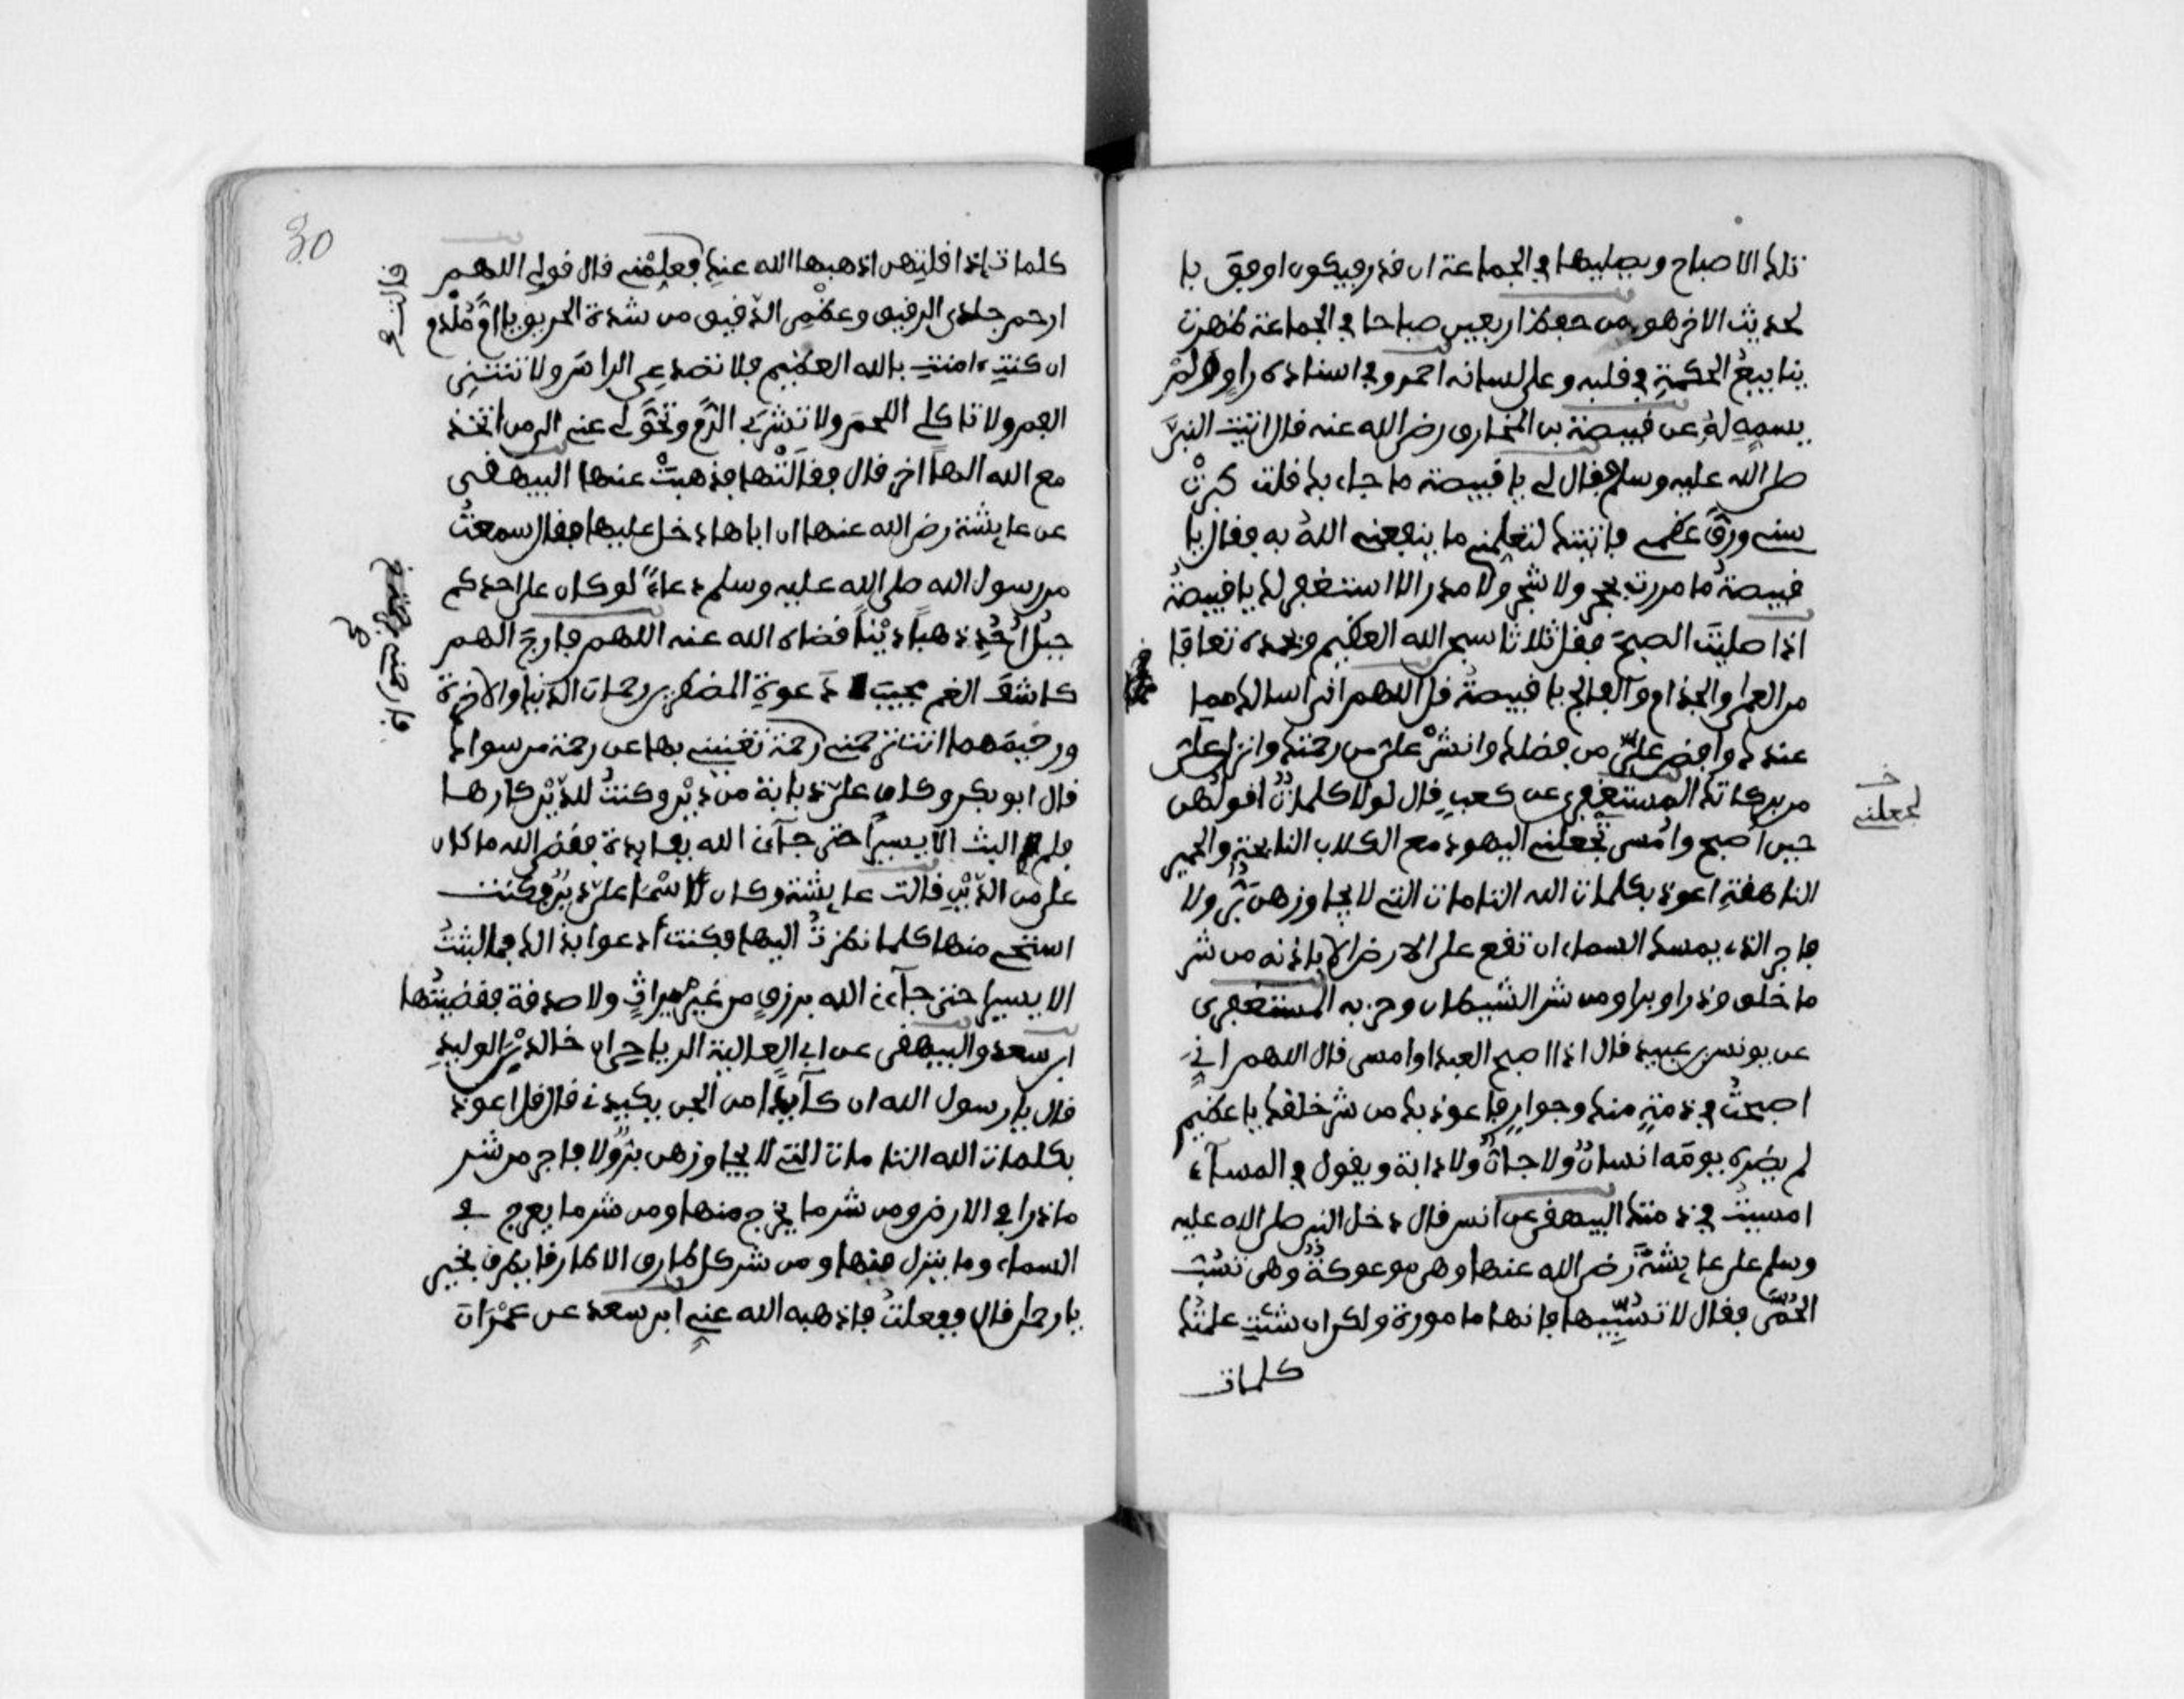 تلك الاصباح ويصليها في الجماعة ان قدر فيكون اوفق با
لحديث الاخر هو من حفظ اربعين صباحا في الجماعة ظهرت
ينابيع الحكمة في قلبه وعلى لسانه احمد وفي اسناده راو لم
يسم له عن قبيصة بن المخارق رضي الله عنه قال اتيت النبي
صلى الله عليه وسلم فقال لي يا قبيصة ما جاء بك قلت كبرت
سني ورق عظمي فاتيتك لتعلمني ما ينفعني الله به فقال يا
قبيصة ما مررت بحجر ولا شجر ولا مدر الا استغفر لك يا قبيصة
اذا صليت الصبح فقل ثلاثا سبحن الله العظيم وبحمده تعافا
من العمى والجذام والفالج يا قبيصة قل اللهم اني اسالك مما
عندك وافض علي من فضلك وانشر علي من رحمتك وانزل علي
من بركاتك المستغفري عن كعب قال لولا كلمات اقولهن
حين اصبح وامسي تجعلني اليهود مع الكلاب النابحة والحمير
الناهقة اعوذ بكلمات الله التامات التي لا يجاوزهن بر ولا
فاجر الذي يمسك السماء ان تقع على الارض الا باذنه من شر
ما خلق وذرا وبرا ومن شر الشيطان وحزبه المستغفري
عن يونس بن عبيد قال اذا اصبح العبد او امسى قال اللهم اني
اصبحت في ذمتك وجوارك فاعوذ بك من شر خلقك يا عظيم
لم يضره يومه انسان ولا جان ولا دابة ويقول في المساء
امسيت في ذمتك البيهقي عن انس قال دخل النبي صلى الله عليه
وسلم على عايشة رضي الله عنها وهي موعوكة وهي تسب
الحمى فقال لا تسبيها فانها مامورة ولكن ان شئت علمتك
كلمات
لجعلتني
كلمات اذا قلتهن اذهبها الله عنك فعلمني قال قولي اللهم
ارحم جلدي الرقيق وعظمي الدقيق من شدة الحريق يا ام ملدم
ان كنت ءامنت بالله العظيم فلا تصدعي الراس ولا تنتني
الفم ولا تاكلي اللحم ولا تشربي الدم وتحولي عني الى من اتخذ
مع الله الها اخر قال فقالتها فذهبت عنها البيهقي
عن عايشة رضي الله عنها ان اباها دخل عليها فقال سمعت
من رسول الله صلى الله عليه وسلم دعاء لو كان على احدكم
جبل احد ذهبا دينا قضاه الله عنه اللهم فارج الهم
كاشف الغم مجيب دعوة المضطرين رحمان الدنيا والاخرة
ورحيمهما انت ترحمني رحمة تغنيني بها عن رحمة من سواك
قال ابو بكر وكان علي ذبابة من دين وكنت للدين كارها
فلم البث الا يسيرا حتى جاءني الله بفايدة فقضى الله ما كان
علي من الدين قالت عايشة وكان لاسماء علي دين وكنت
استحي منها كلما نظرت اليها فكنت ادعوا بذلك فما لبثت
الا يسيرا حتى جاءني الله برزق من غير ميراث ولا صدقة فقضيتها
ابن سعد والبيهقي عن ابي العالية الرياحي ان خالد بن الوليد
قال يا رسول الله ان كايدا من الجن يكيدني قال قل اعوذ
بكلمات الله التامات التي لا يجاوزهن بر ولا فاجر من شر
ما ذرا في الارض ومن شر ما يخرج منها ومن شر ما يعرج في
السماء وما ينزل منها ومن شر كل طارق الا طارقا يطرق بخير
يا رحمن قال ففعلت فاذهبه الله عني ابن سعد عن عمران
قالت
فارحمني برحمتك
30